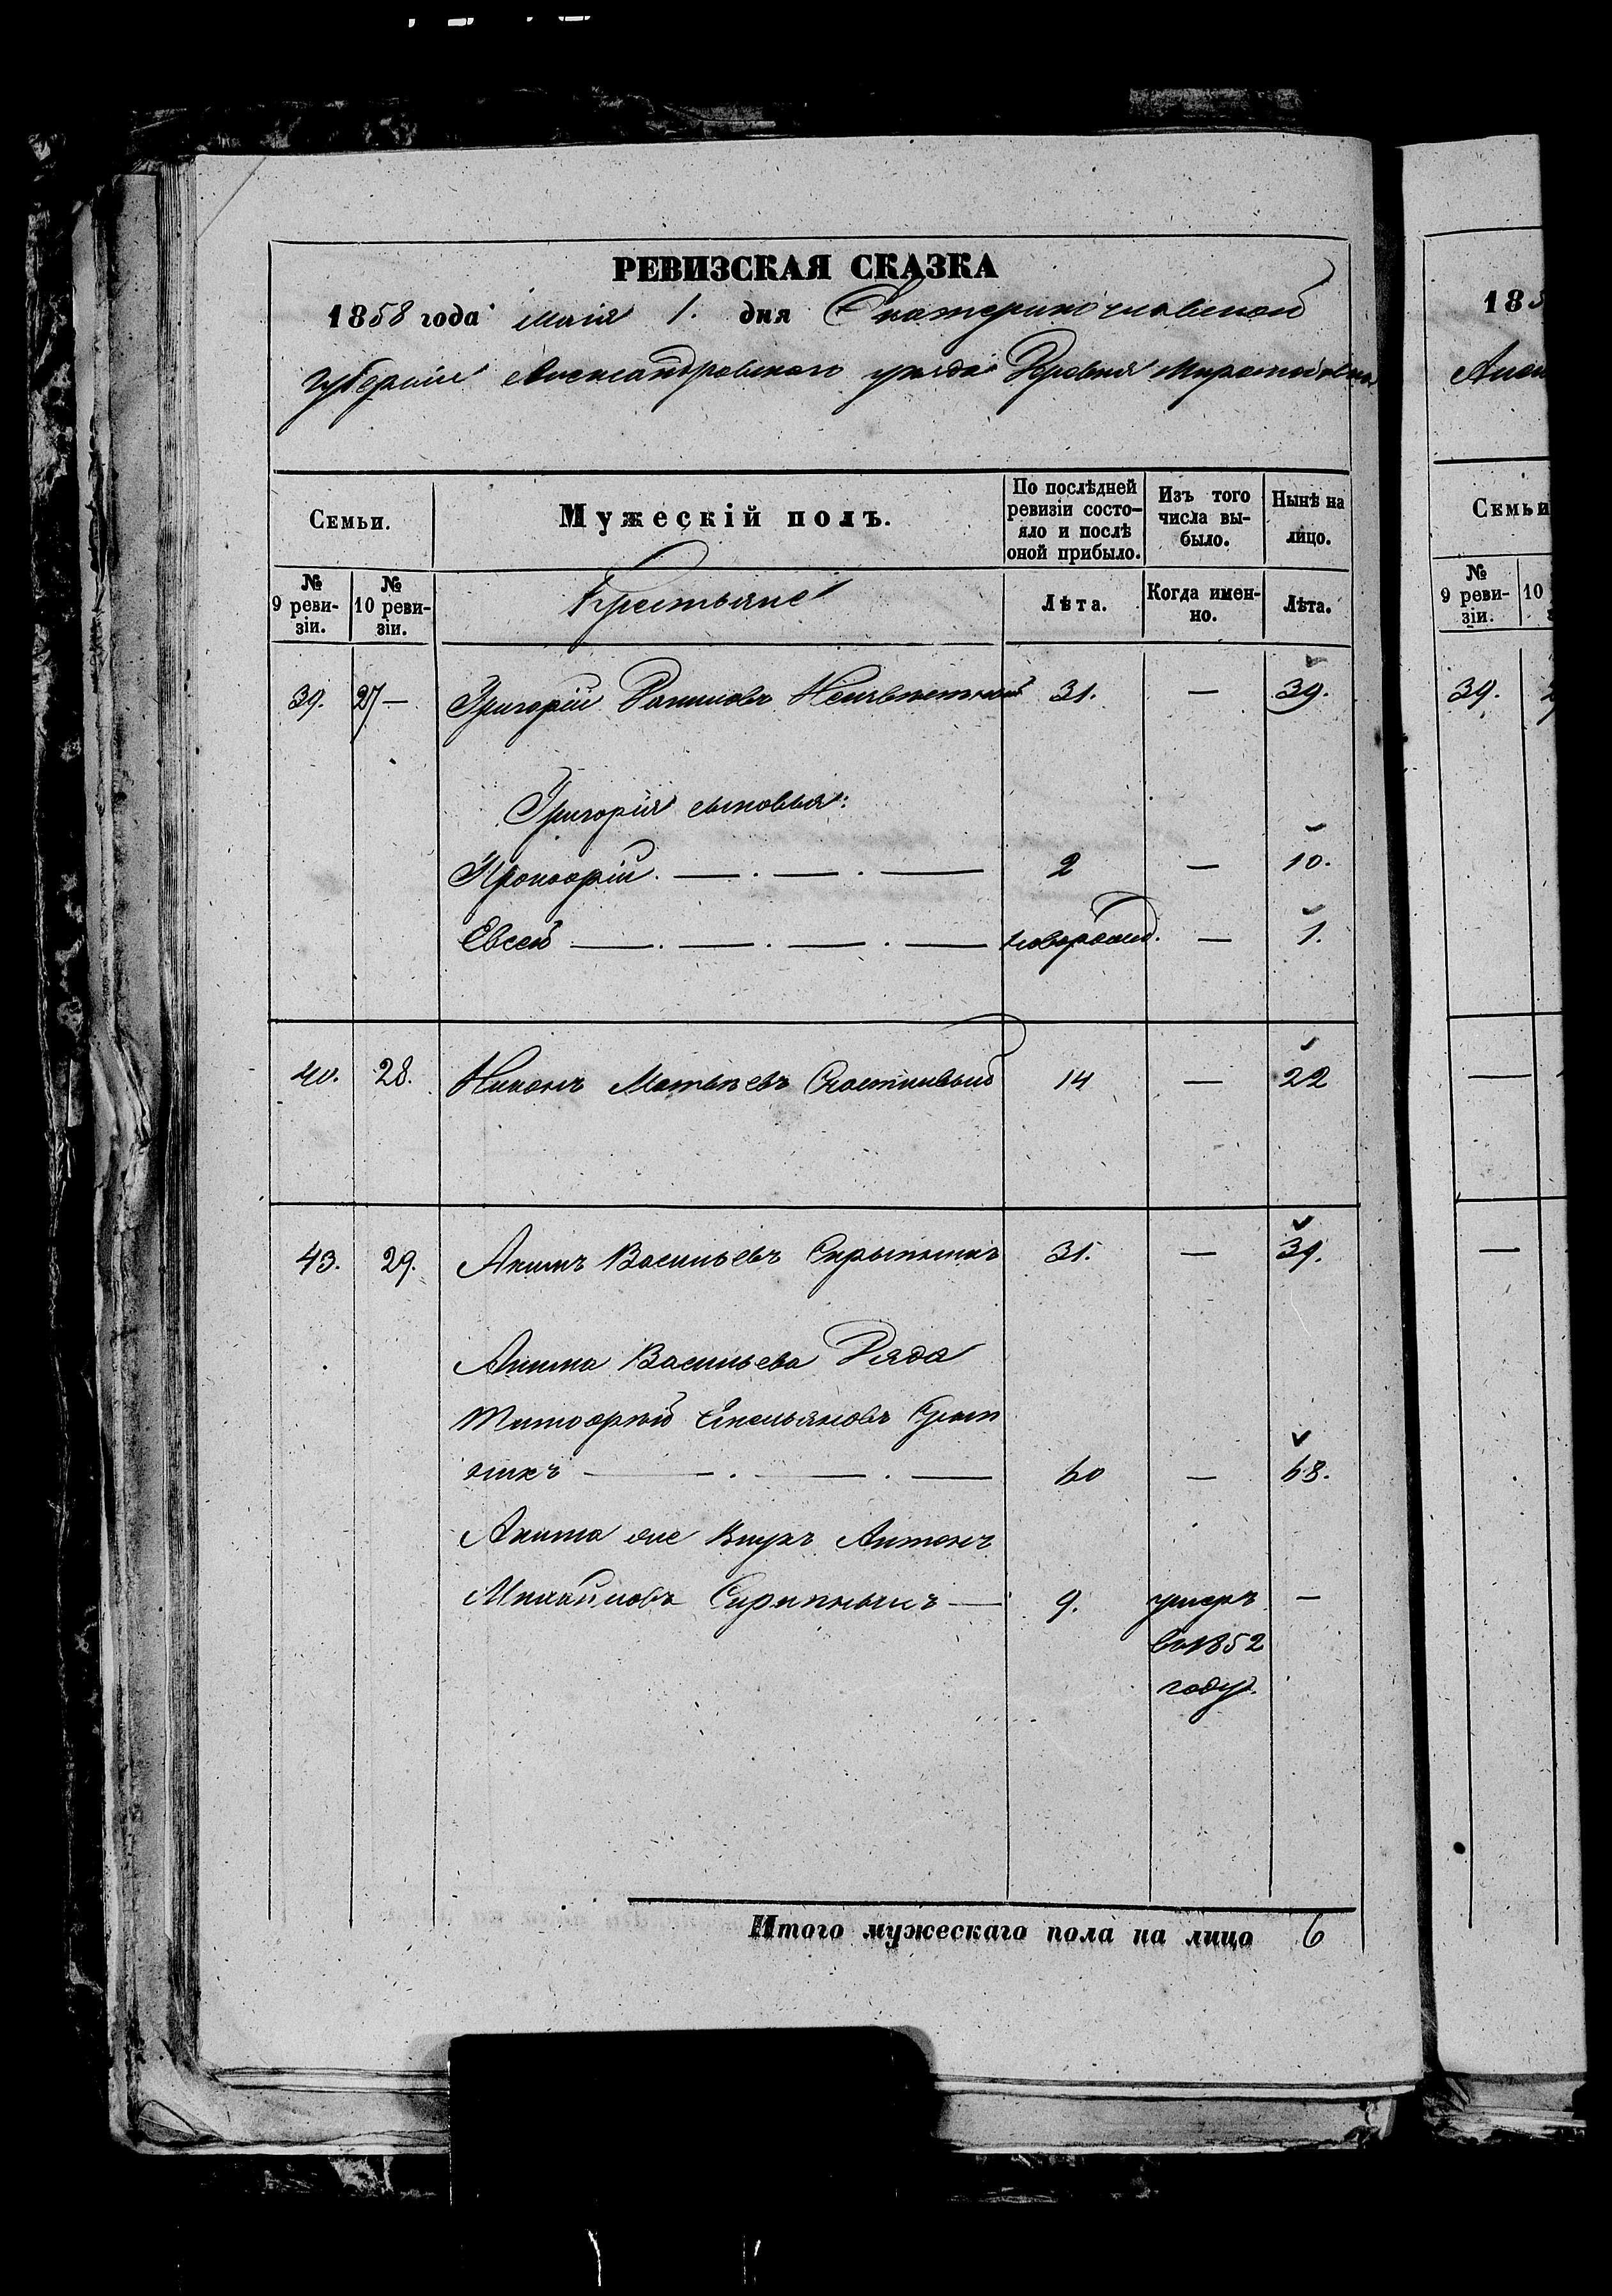 РЕВИЗСКАЯ СКАЗКА
1858 года маія 1. дня Екатеринославской
губерніи Александровскаго уѣзда Деревня
Семьи. Мужескій полъ. По послѣдней ревизіи состо-яло и послѣ оной прибыло. Изъ того числа вы-было. Нынѣ на лицо.
№ 9 реви-зіи. № 10 реви-зіи. Крестьяне Лѣта. Когда имен-но. Лѣта.
39. 27 — Григорій 31. — 39.
Григорія сыновья:
Прокофій. — . — . — 2 — 10.
Евсей — . — . — . — новорожд. — 1.
40. 28. Никонъ Матвѣевъ Счастливый 14 — 22
43. 29. Акимъ Васильевъ Скрыпникъ 31. — 39.
Акима Васильева Дядя
Тимофѣй Емельяновъ Скрып
никъ — . — . — 60 — 68.
Акима же Внукъ Антонъ
Михайловъ Скрыпникъ — 9. умеръ —
въ 1852
году.
Итого мужескаго пола на лицо 6
185
Семьи
№ 9 реви-зіи. 10
39.